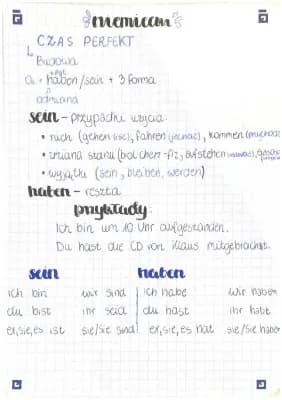 niemiecki
CZAS PERFEKT
↳ Budowa
Os. + haben/sein + 3 forma
odmiana
sein - przypadki użycia:
• ruch (gehen (iść), fahren (jechać), kommen
• zmiana stanu aufstehen
• wyjątki (sein, bleiben, werden)
haben - reszta
przykłady:
Ich bin um 10 Uhr aufgestanden.
Du hast die CD von Klaus mitgebracht.
sein haben
ich bin wir sind ich habe wir haben
du bist ihr seid du hast ihr habt
er,sie,es ist sie/Sie sind er,sie,es hat sie/Sie haben